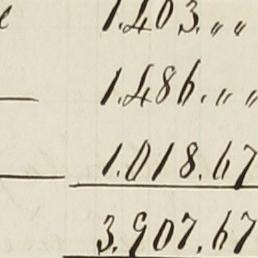 1.403.„ „
1.486.„ „
1.018.67
3.907.67